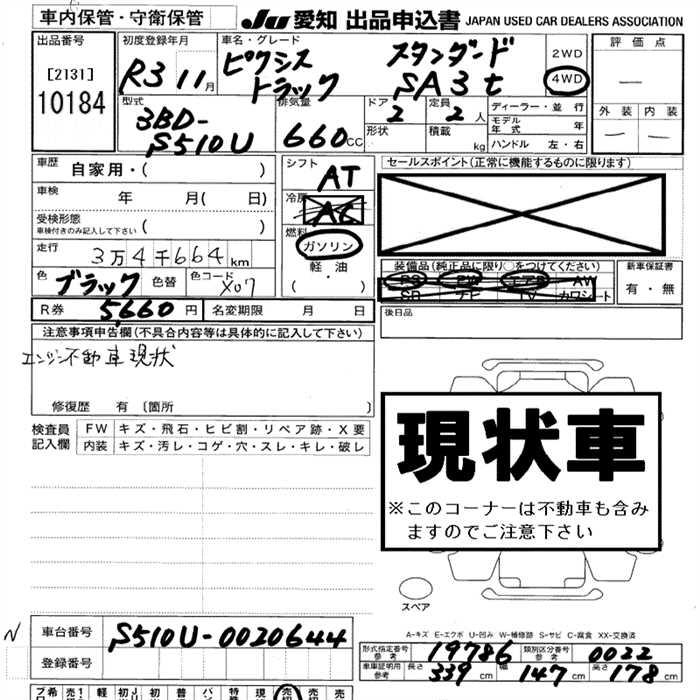 車内保管・守衛保管
JU 愛知 出品申込書 JAPAN USED CAR DEALERS ASSOCIATION
出品番号
[2131]
10184
初度登録年月
R3 11月
車名・グレード
ピクシス スタンダード
トラック SA3t
2WD
4WD
評価点
—
外装 内装
— —
型式
3BD-
S510U
排気量
660cc
ドア 2
定員 2人
形状
積載 kg
ディーラー・並行
モデル年式 年
ハンドル 左・右
車歴 自家用・( )
車検 年 月( 日)
受検形態
車検付きのみ記入して下さい ( )
走行 3万4千664km
色 ブラック 色替 色コード X07
R券 5,660円 名変期限 月 日
シフト
AT
冷房
AC
燃料
ガソリン
軽・油
( )
セールスポイント(正常に機能するものに限ります)
装備品(純正品に限り○をつけてください)
PS PW エアB AW
SR ナビ TV カワシート
新車保証書
有・無
後日品
注意事項申告欄(不具合内容等は具体的に記入して下さい)
エンジン不動車現状
修復歴 有〔箇所 〕
検査員記入欄
FW キズ・飛石・ヒビ割・リペア跡・X要
内装 キズ・汚レ・コゲ・穴・スレ・キレ・破レ
現状車
※このコーナーは不動車も含み
ますのでご注意下さい
スペア
A-キズ E-エクボ U-凹み W-補修跡 S-サビ C-腐食 XX-交換済
N
車台番号 S510U-0020644
登録番号
形式指定番号 参考 19786 類別区分番号 参考 0022
車庫証明用 参考 長さ 339cm 幅 147cm 高さ 178cm